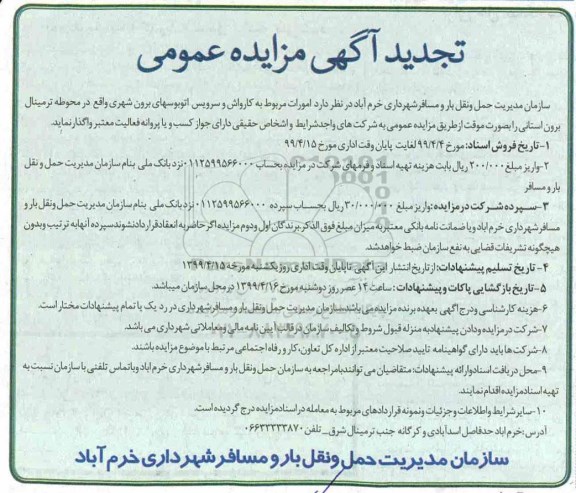 تجدید آگهی مزایده عمومی
سازمان مدیریت حمل ونقل بار و مسافر شهرداری خرم آباد در نظر دارد امورات مربوط به کارواش و سرویس اتوبوسهای برون شهری واقع در محوطه ترمینال
برون استانی را بصورت موقت از طریق مزایده عمومی به شرکت های واجد شرایط و اشخاص حقیقی دارای جواز کسب و یا پروانه فعالیت معتبر واگذار نماید.
۱- تاریخ فروش اسناد: مورخ ۹۹/۴/۴ لغایت پایان وقت اداری مورخ ۹۹/۴/۱۵
۲- واریز مبلغ ۲۰۰/۰۰۰ ریال بابت هزینه تهیه اسناد و فرمهای شرکت در مزایده بحساب ۰۱۱۲۵۹۹۵۶۶۰۰۰ نزد بانک ملی بنام سازمان مدیریت حمل و نقل
بار و مسافر
۳- سپرده شرکت در مزایده: واریز مبلغ ۳۰/۰۰۰/۰۰۰ ریال بحساب سپرده ۰۱۱۲۵۹۹۵۶۶۰۰۰ نزد بانک ملی بنام سازمان مدیریت حمل ونقل بار و
مسافر شهرداری خرم آباد و یا ضمانت نامه بانکی معتبر به میزان مبلغ فوق الذکر برندگان اول و دوم مزایده اگر حاضر به انعقاد قرارداد نشوند سپرده آنها به ترتیب و بدون
هیچگونه تشریفات قضایی به نفع سازمان ضبط خواهد شد.
۴- تاریخ تسلیم پیشنهادات: از تاریخ انتشار این آگهی تا پایان وقت اداری روز یکشنبه مورخه ۱۳۹۹/۴/۱۵
۵- تاریخ بازگشایی پاکات و پیشنهادات: ساعت ۱۴ عصر روز دوشنبه مورخ ۱۳۹۹/۴/۱۶ در محل سازمان میباشد.
۶- هزینه کارشناسی و درج آگهی بعهده برنده مزایده می باشد. سازمان مدیریت حمل ونقل بار و مسافر شهرداری در رد یک یا تمام پیشنهادات مختار است.
۷- شرکت در مزایده و دادن پیشنهاد به منزله قبول شروط و تکالیف سازمان در قالب آیین نامه مالی و معاملاتی شهرداری می باشد.
۸- شرکت ها باید دارای گواهینامه تایید صلاحیت معتبر از اداره کل تعاون، کار و رفاه اجتماعی مرتبط با موضوع مزایده باشند.
۹- محل دریافت اسناد و ارائه پیشنهادات: متقاضیان می توانند با مراجعه به سازمان حمل ونقل بار و مسافر شهرداری خرم آباد و یا تماس تلفنی با سازمان نسبت به
تهیه اسناد مزایده اقدام نمایند.
۱۰- سایر شرایط و اطلاعات و جزئیات و نمونه قراردادهای مربوط به معامله در اسناد مزایده درج گردیده است.
آدرس: خرم آباد حدفاصل اسدآبادی و کرگانه جنب ترمینال شرق _ تلفن ۰۶۶۳۳۳۳۳۸۷۰
سازمان مدیریت حمل ونقل بار و مسافر شهرداری خرم آباد